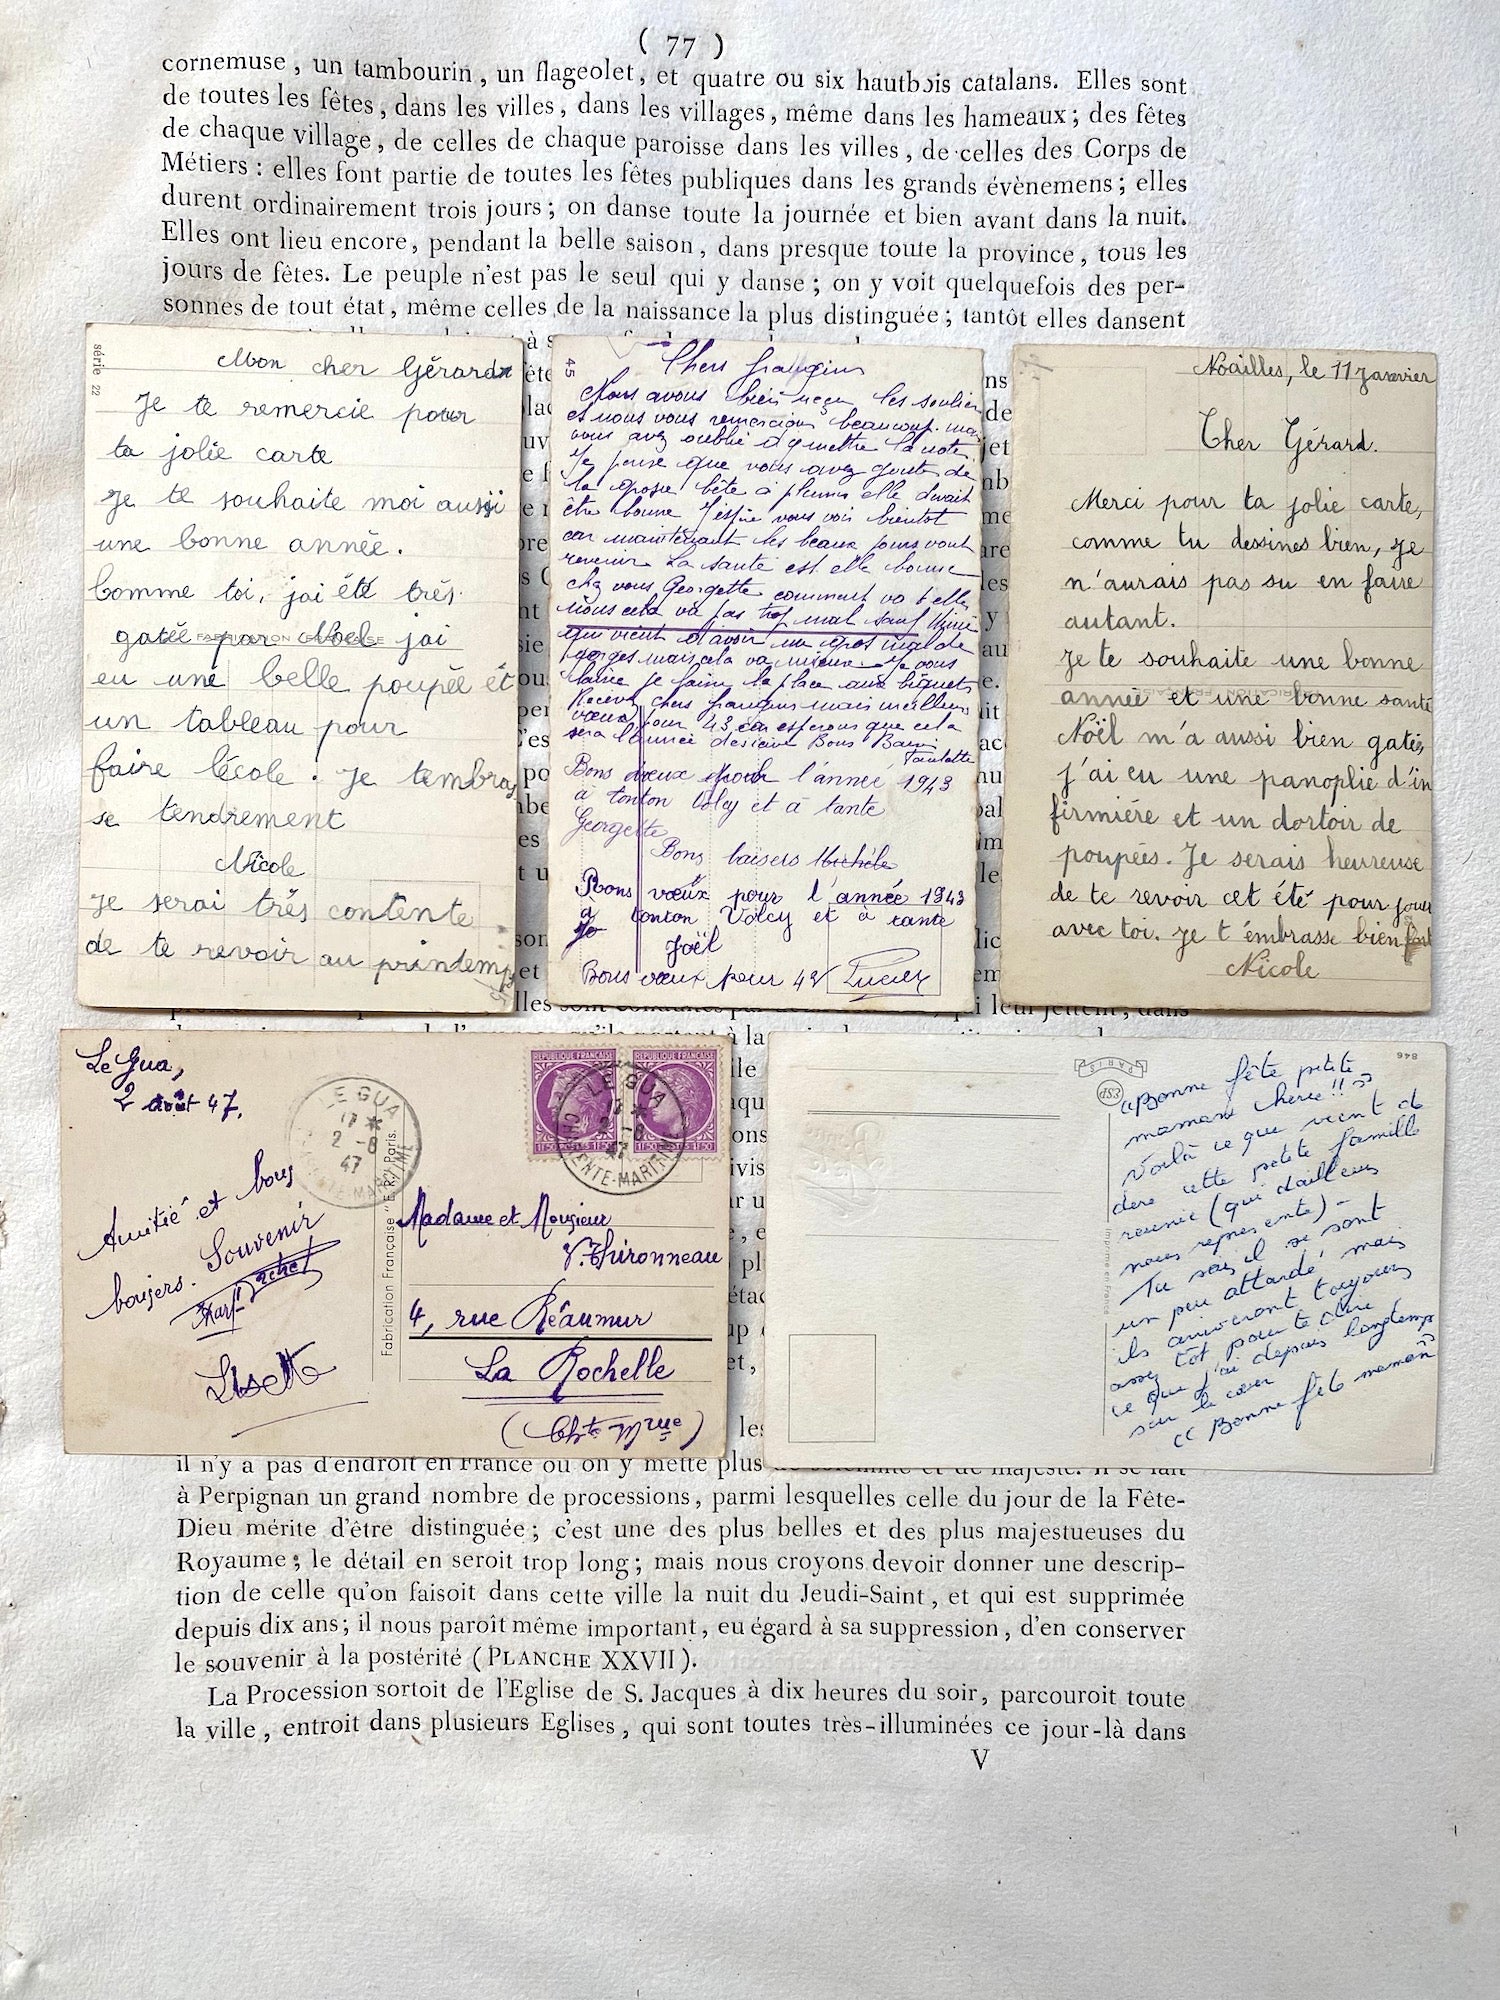 ( 77 )
cornemuse, un tambourin, un flageolet, et quatre ou six hautbois catalans. Elles sont
de toutes les fêtes, dans les villes, dans les villages, même dans les hameaux; des fêtes
de chaque village, de celles de chaque paroisse dans les villes, de celles des Corps de
Métiers: elles font partie de toutes les fêtes publiques dans les grands évènemens; elles
durent ordinairement trois jours; on danse toute la journée et bien avant dans la nuit.
Elles ont lieu encore, pendant la belle saison, dans presque toute la province, tous les
jours de fêtes. Le peuple n'est pas le seul qui y danse; on y voit quelquefois des per-
sonnes de tout état, même celles de la naissance la plus distinguée; tantôt elles dansent
série 22
Mon cher Gérard
Je te remercie pour
ta jolie carte
Je te souhaite moi aussi
une bonne année.
Comme toi, jai été très
gatée par Noel jai
FABRICATION FRANÇAISE
eu une belle poupée et
un tableau pour
faire lécole. Je tembras
se tendrement
Nicole
Je serai très contente
de te revoir au printemps
45
Chers frangins
Nous avons bien reçu les soulier
et nous vous remercions beaucoup. mais
vous avez oublié d'y mettre la note.
Je pense que vous avez gouté de
la grosse bête à plumes elle devait
être bonne J'espère vous voir bientôt
car maintenant les beaux jours vont
revenir La santé est elle bonne
chez vous Georgette comment va t elle
nous cela va pas trop mal sauf
qui vient d'avoir un gros mal de
gorges mais cela va mieux. Je vous
laisse je laisse la place aux
Recevez chers frangins mais meilleurs
vœux pour 43 esperons que cela
sera l'année décisive Bons
Paulette
Bons vœux pour l'année 1943
à tonton Volcy et à tante
Georgette
Bons baisers Michèle
Bons vœux pour l'année 1943
à tonton Volcy et à tante
Jo
Joël
Bons vœux pour 43 Lucien
Noailles, le 11 Janvier
Cher Gérard.
Merci pour ta jolie carte,
comme tu dessines bien, je
n'aurais pas su en faire
autant.
Je te souhaite une bonne
année et une bonne santé
Noël m'a aussi bien gatée
j'ai eu une panoplie d'in
firmière et un dortoir de
poupées. Je serais heureuse
de te revoir cet été pour jouer
avec toi. Je t'embrasse bien fort
Nicole
Le Gua,
2 août 47.
LE GUA
17 *
2 -8
47
CHARENTE-MARITIME
REPUBLIQUE FRANÇAISE
REPUBLIQUE FRANÇAISE
1F50 POSTES 1F50
1F50 POSTES 1F50
LE GUA
17 *
2 -8
47
CHARENTE-MARITIME
Amitié et bons
baisers. Souvenir
Lisette
Fabrication Française "E.R." Paris.
Madame et Monsieur
V. Thironneau
4, rue Réaumur
La Rochelle
(Chte Mme)
PARIS
846
Imprimé en France
"Bonne fête petite
maman chérie!!"
Voilà ce que vient de
dire cette petite famille
réunie (qui d'ailleurs
nous représente) -
Tu sais il se sont
un peu attardé mais
ils arriveront toujours
assez tôt pour te dire
ce que j'ai depuis longtemps
sur le cœur
"Bonne fête maman"
il n'y a pas d'endroit en France où on y mette plus de solemnité et de majesté. Il se fait
à Perpignan un grand nombre de processions, parmi lesquelles celle du jour de la Fête-
Dieu mérite d'être distinguée; c'est une des plus belles et des plus majestueuses du
Royaume; le détail en seroit trop long; mais nous croyons devoir donner une descrip-
tion de celle qu'on faisoit dans cette ville la nuit du Jeudi-Saint, et qui est supprimée
depuis dix ans; il nous paroît même important, eu égard à sa suppression, d'en conserver
le souvenir à la postérité (PLANCHE XXVII).
La Procession sortoit de l'Eglise de S. Jacques à dix heures du soir, parcouroit toute
la ville, entroit dans plusieurs Eglises, qui sont toutes très-illuminées ce jour-là dans
V